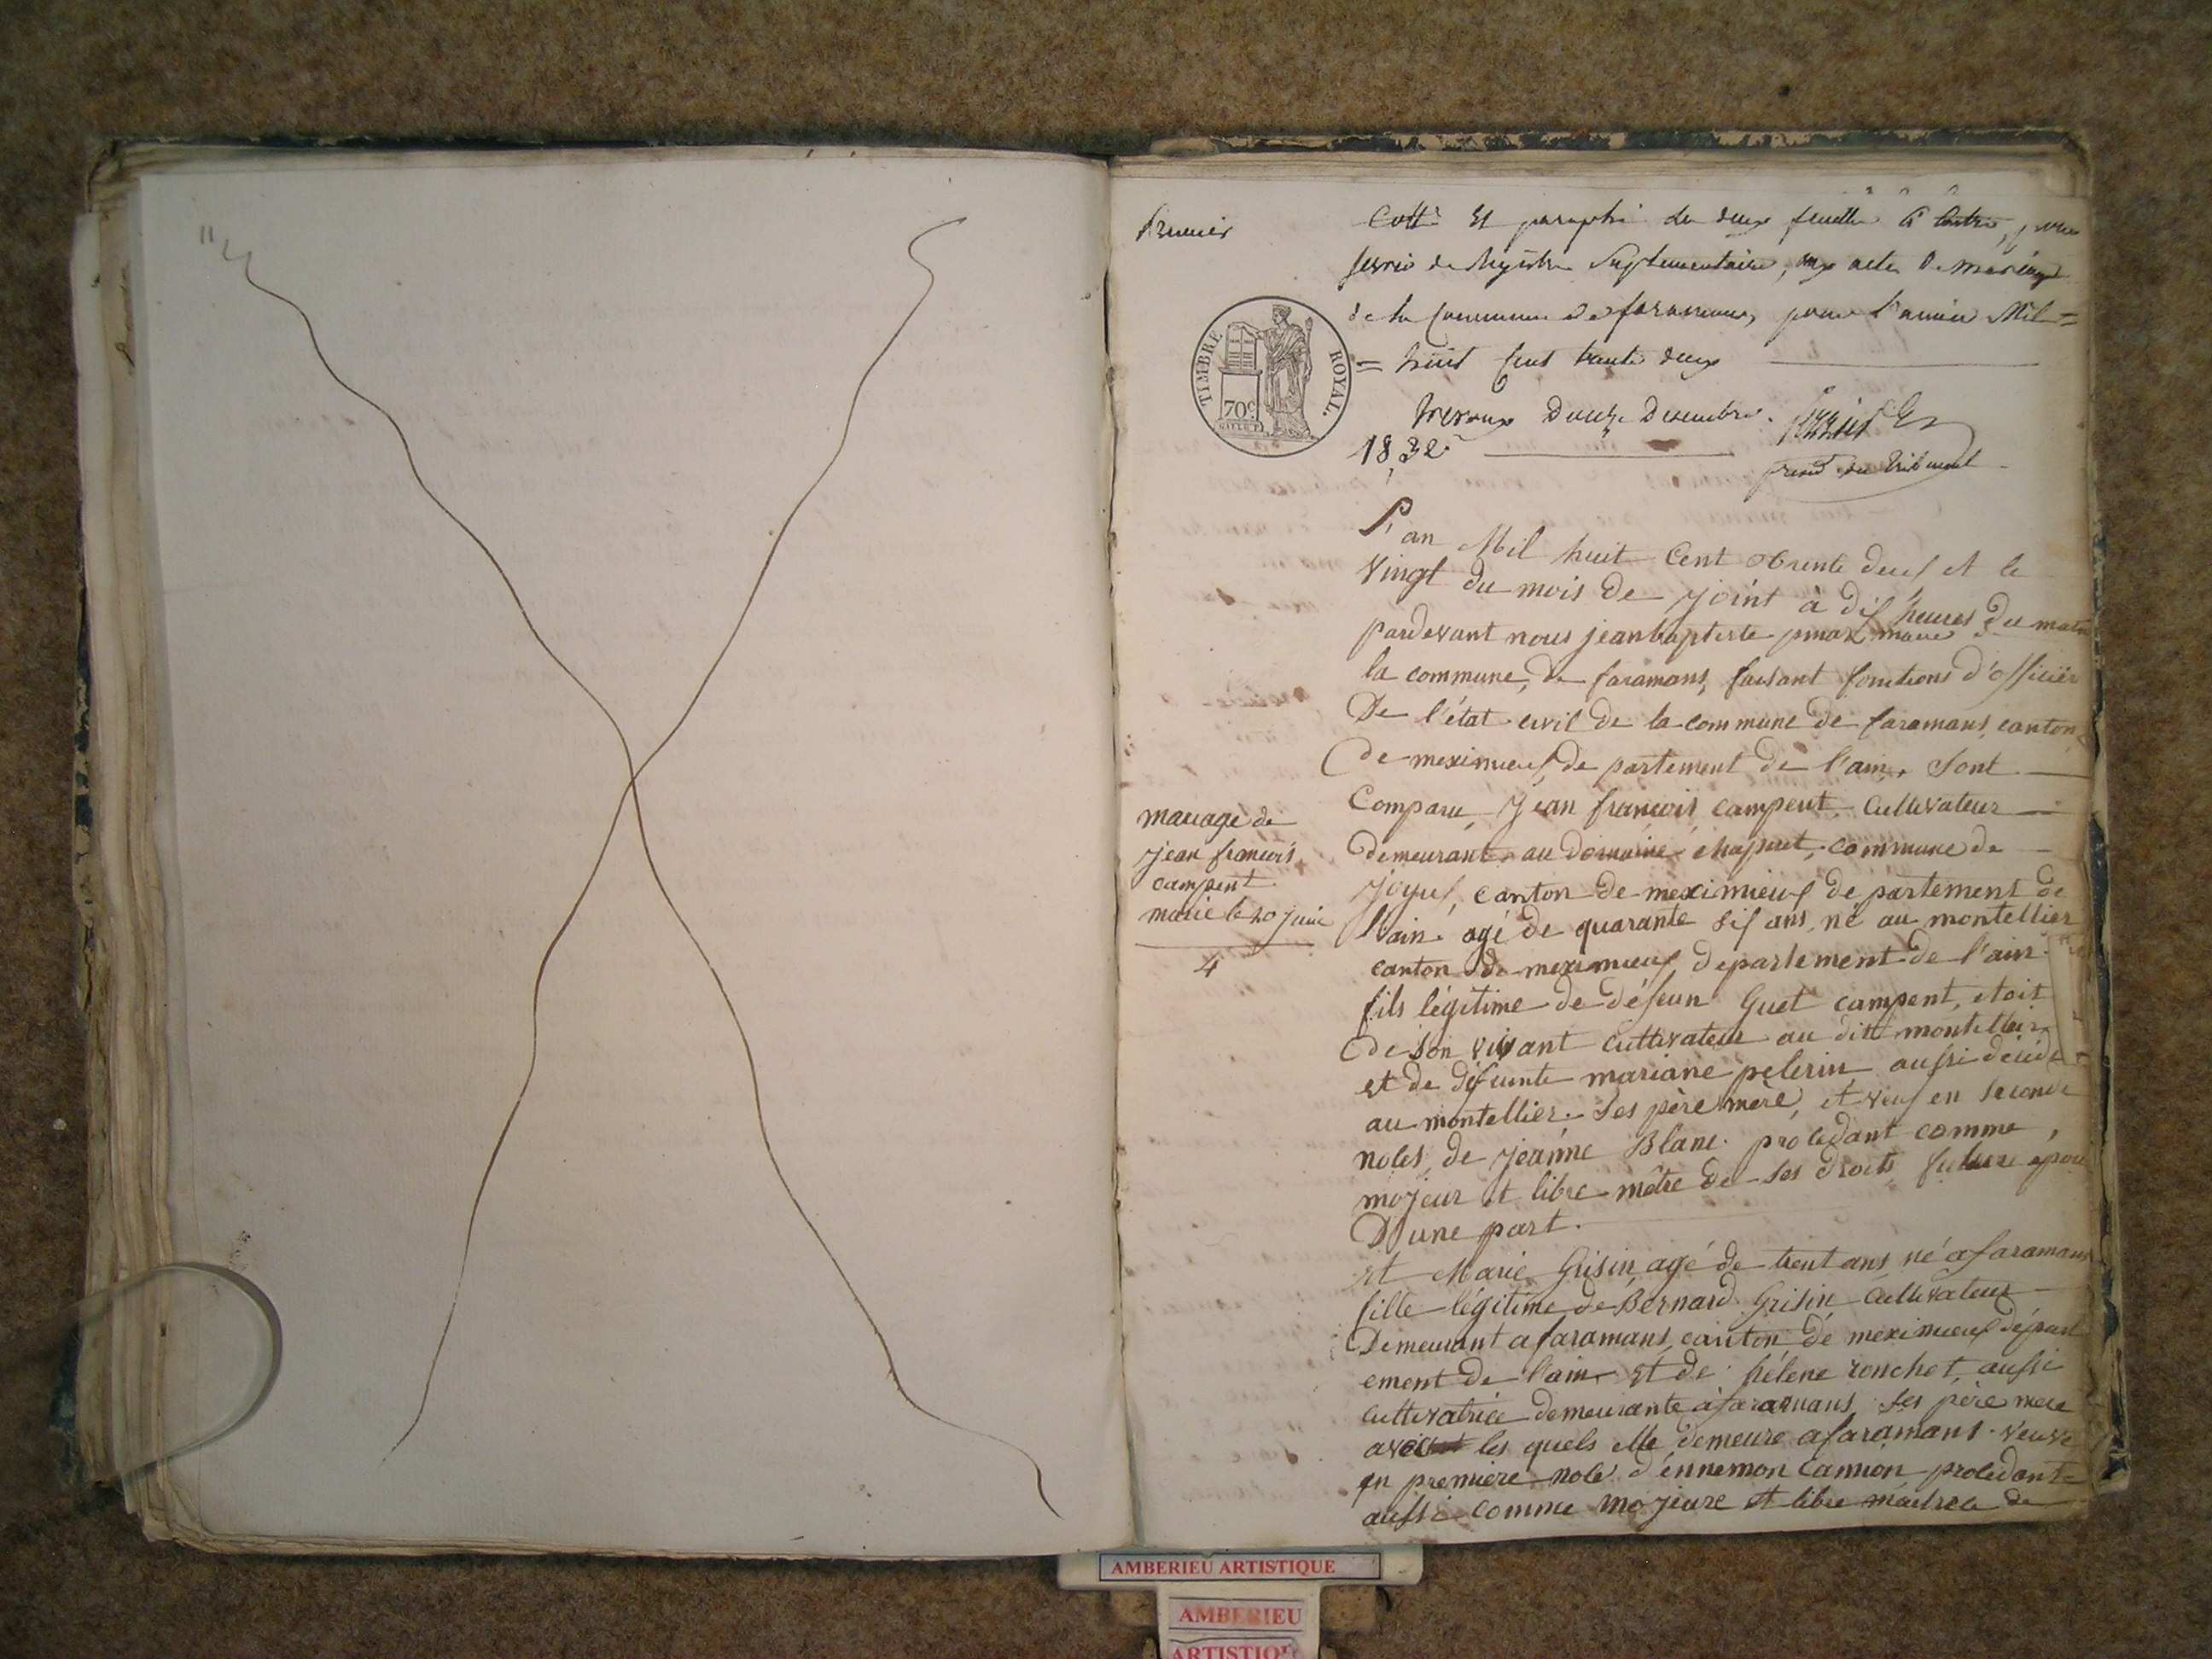 Premier
Cotté et paraphé de deux feuilles à contre, pour
servir de Registre Suplementaire, aux actes de mariage
de la Commune de faramans, pour l'année Mil=
= huit Cent trente deux
TIMBRE ROYAL.
70c
Trevoux Douze Decembre.
1832
presid. du tribunal
L'an Mil huit Cent trente deux et le
vingt du mois de joint à dix heures du matin
pardevant nous jean baptiste maire de
la commune, de faramans, faisant fonctions d'officiér
De l'état civil de la commune de faramans, canton
de meximieux, de partement de l'ain, Sont
Comparu, Jean françois, campent, cultivateur
demeurant au domaine chapuet, commune de
Joyux, canton de meximieux de partement de
l'ain. agé de quarante six ans, né au montellier
canton de meximieux departement de l'ain
fils légitime de défeun Guet campent, etoit
de son vivant Cultivateur au dit montellier
et de défunte mariane pelerin aussi décidé
au montellier. Ses père mere, et veuf en seconde
noles, de jeanne Blanc. proledant comme
mojeur et libre mêtre de ses droits, future epoux
D'une part.
et Marie Grisin agé de trent ans, né a faramans
fille légitime de Bernard Grisin cultivateur
Demeurant a faramans, canton de meximieux départ
ement de l'ain et de hélene ronchet, aussi
cultivatrice demeurante a faramans Ses père mere
avec les quels elle demeure a faramans. veuve
en premiere nole d'énnemon Camion proledant
aussi comme mojeure et libre maitresse de
mariage de
jean francois
campent
marié le 20 juin
4
AMBERIEU ARTISTIQUE
AMBERIEU
ARTISTIQ